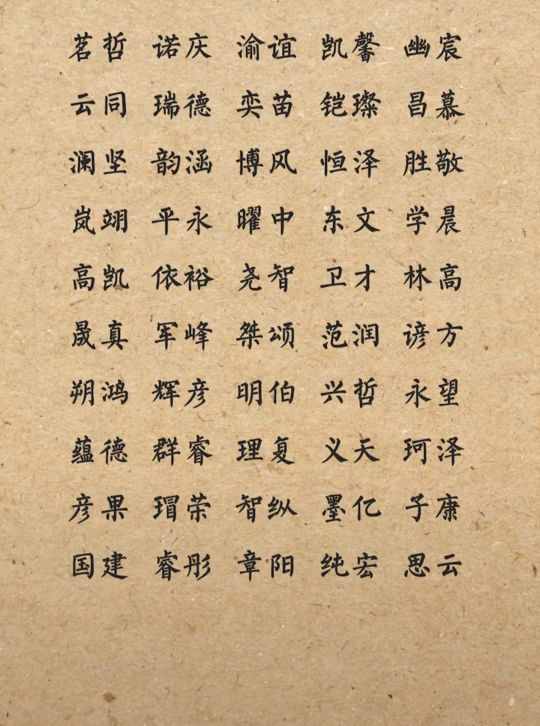 茗哲 诺庆 渝谊 凯馨 幽宸
云同 瑞德 奕苗 铠璨 昌慕
澜坚 韵涵 博风 恒泽 胜敬
岚翊 平永 曜中 东文 学晨
高凯 依裕 尧智 卫才 林高
晟真 军峰 桀颂 范润 谚方
朔鸿 辉彦 明伯 兴哲 永望
蕴德 群睿 理复 义天 珂泽
彦果 瑁荣 智纵 墨亿 子康
国建 睿彤 章阳 纯宏 思云